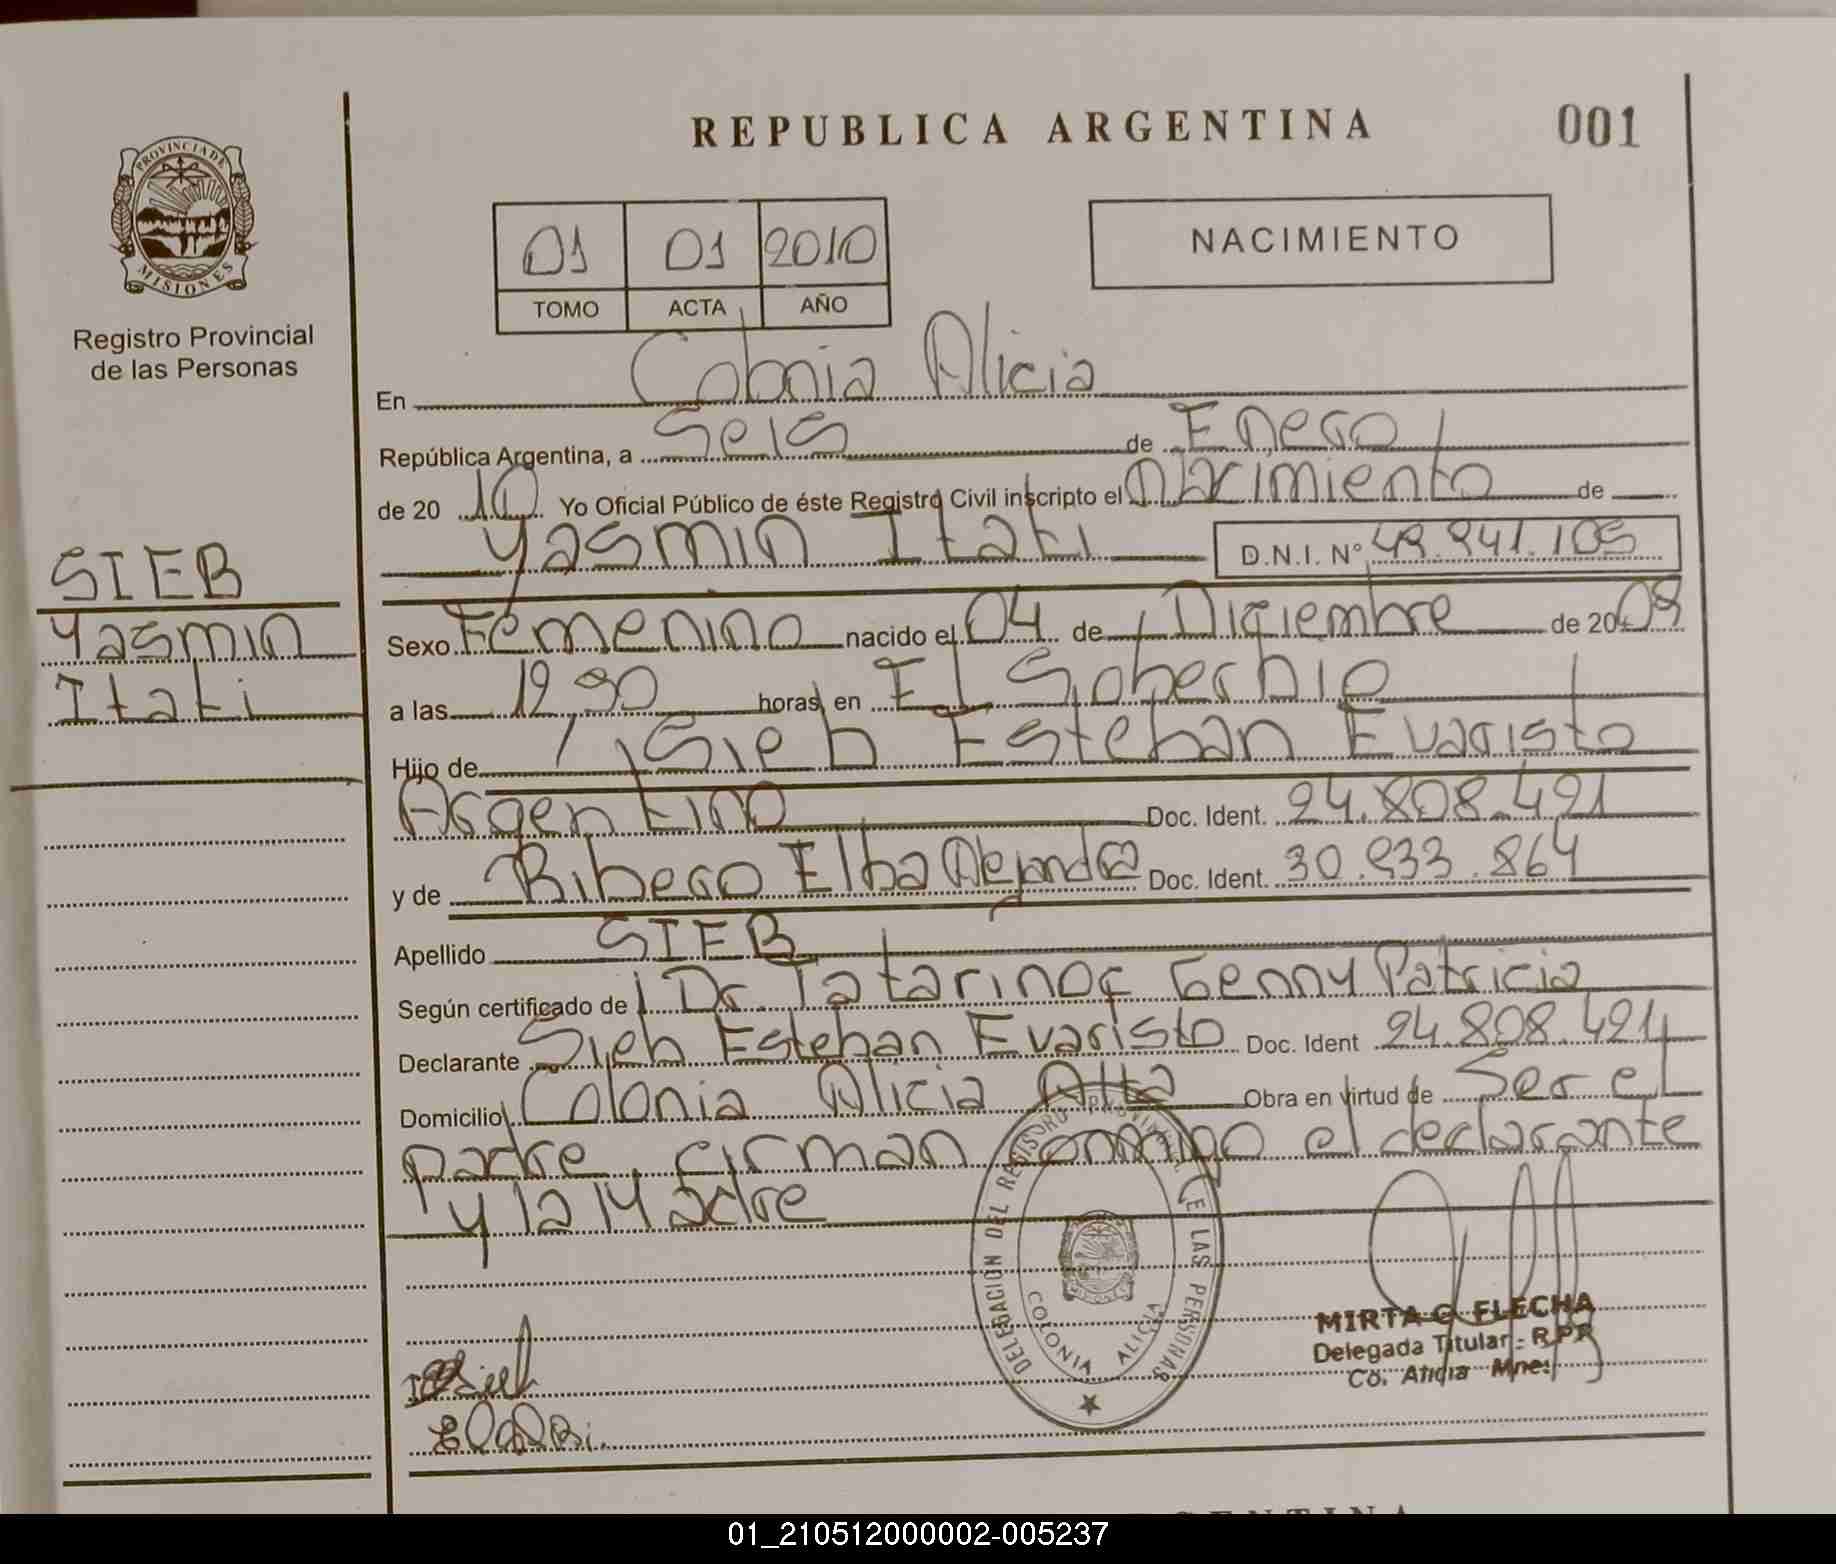 REPUBLICA ARGENTINA
001
PROVINCIA DE
MISIONES
Registro Provincial
de las Personas
01 01 2010
TOMO ACTA AÑO
NACIMIENTO
En Colonia Alicia
República Argentina, a Seis de Enero
de 20 10 Yo Oficial Público de éste Registro Civil inscripto el Nacimiento de
Yasmin Itati D.N.I. Nº 49.941.105
SIEB
Yasmin
Itati
Sexo Femenino nacido el 04 de Diciembre de 2009
a las 12,30 horas en El Soberbio
Hijo de Sieb Esteban Evaristo
Argentino Doc. Ident. 24.808.421
y de Ribero Elba Alejandra Doc. Ident. 30.933.864
Apellido SIEB
Según certificado de Dr. Tatarinof Genny Patricia
Declarante Sieb Esteban Evaristo Doc. Ident 24.808.421
Domicilio Colonia Alicia Alta Obra en virtud de Ser el
padre, firman conmigo el declarante
y la Madre
DELEGACIÓN DEL REGISTRO PROVINCIAL DE LAS PERSONAS
COLONIA ALICIA
MIRTA G. FLECHA
Delegada Titular - R.P.P.
Co. Alicia Mnes.
01_210512000002-005237